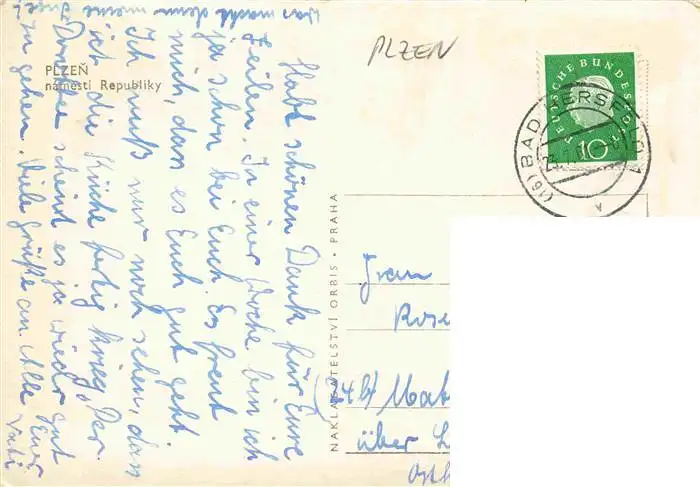 PLZEŇ
náměstí Republiky
PLZEN
Habt schönen Dank für Eure
Zeilen. In einer Woche bin ich
ja schon bei Euch. Es freut
mich, dass es Euch gut geht
Ich muß nur noch sehen, dass
ich die Küche fertig krieg. Der
scheint es ja wieder gut
zu gehen. Viele Grüße an Alle Euer
Vati
was macht denn meine
NAKLADATELSTVÍ ORBIS • PRAHA
DEUTSCHE BUNDESPOST
10
(16) BAD HERSFELD 1
Frau
Rose
(24b)
über L